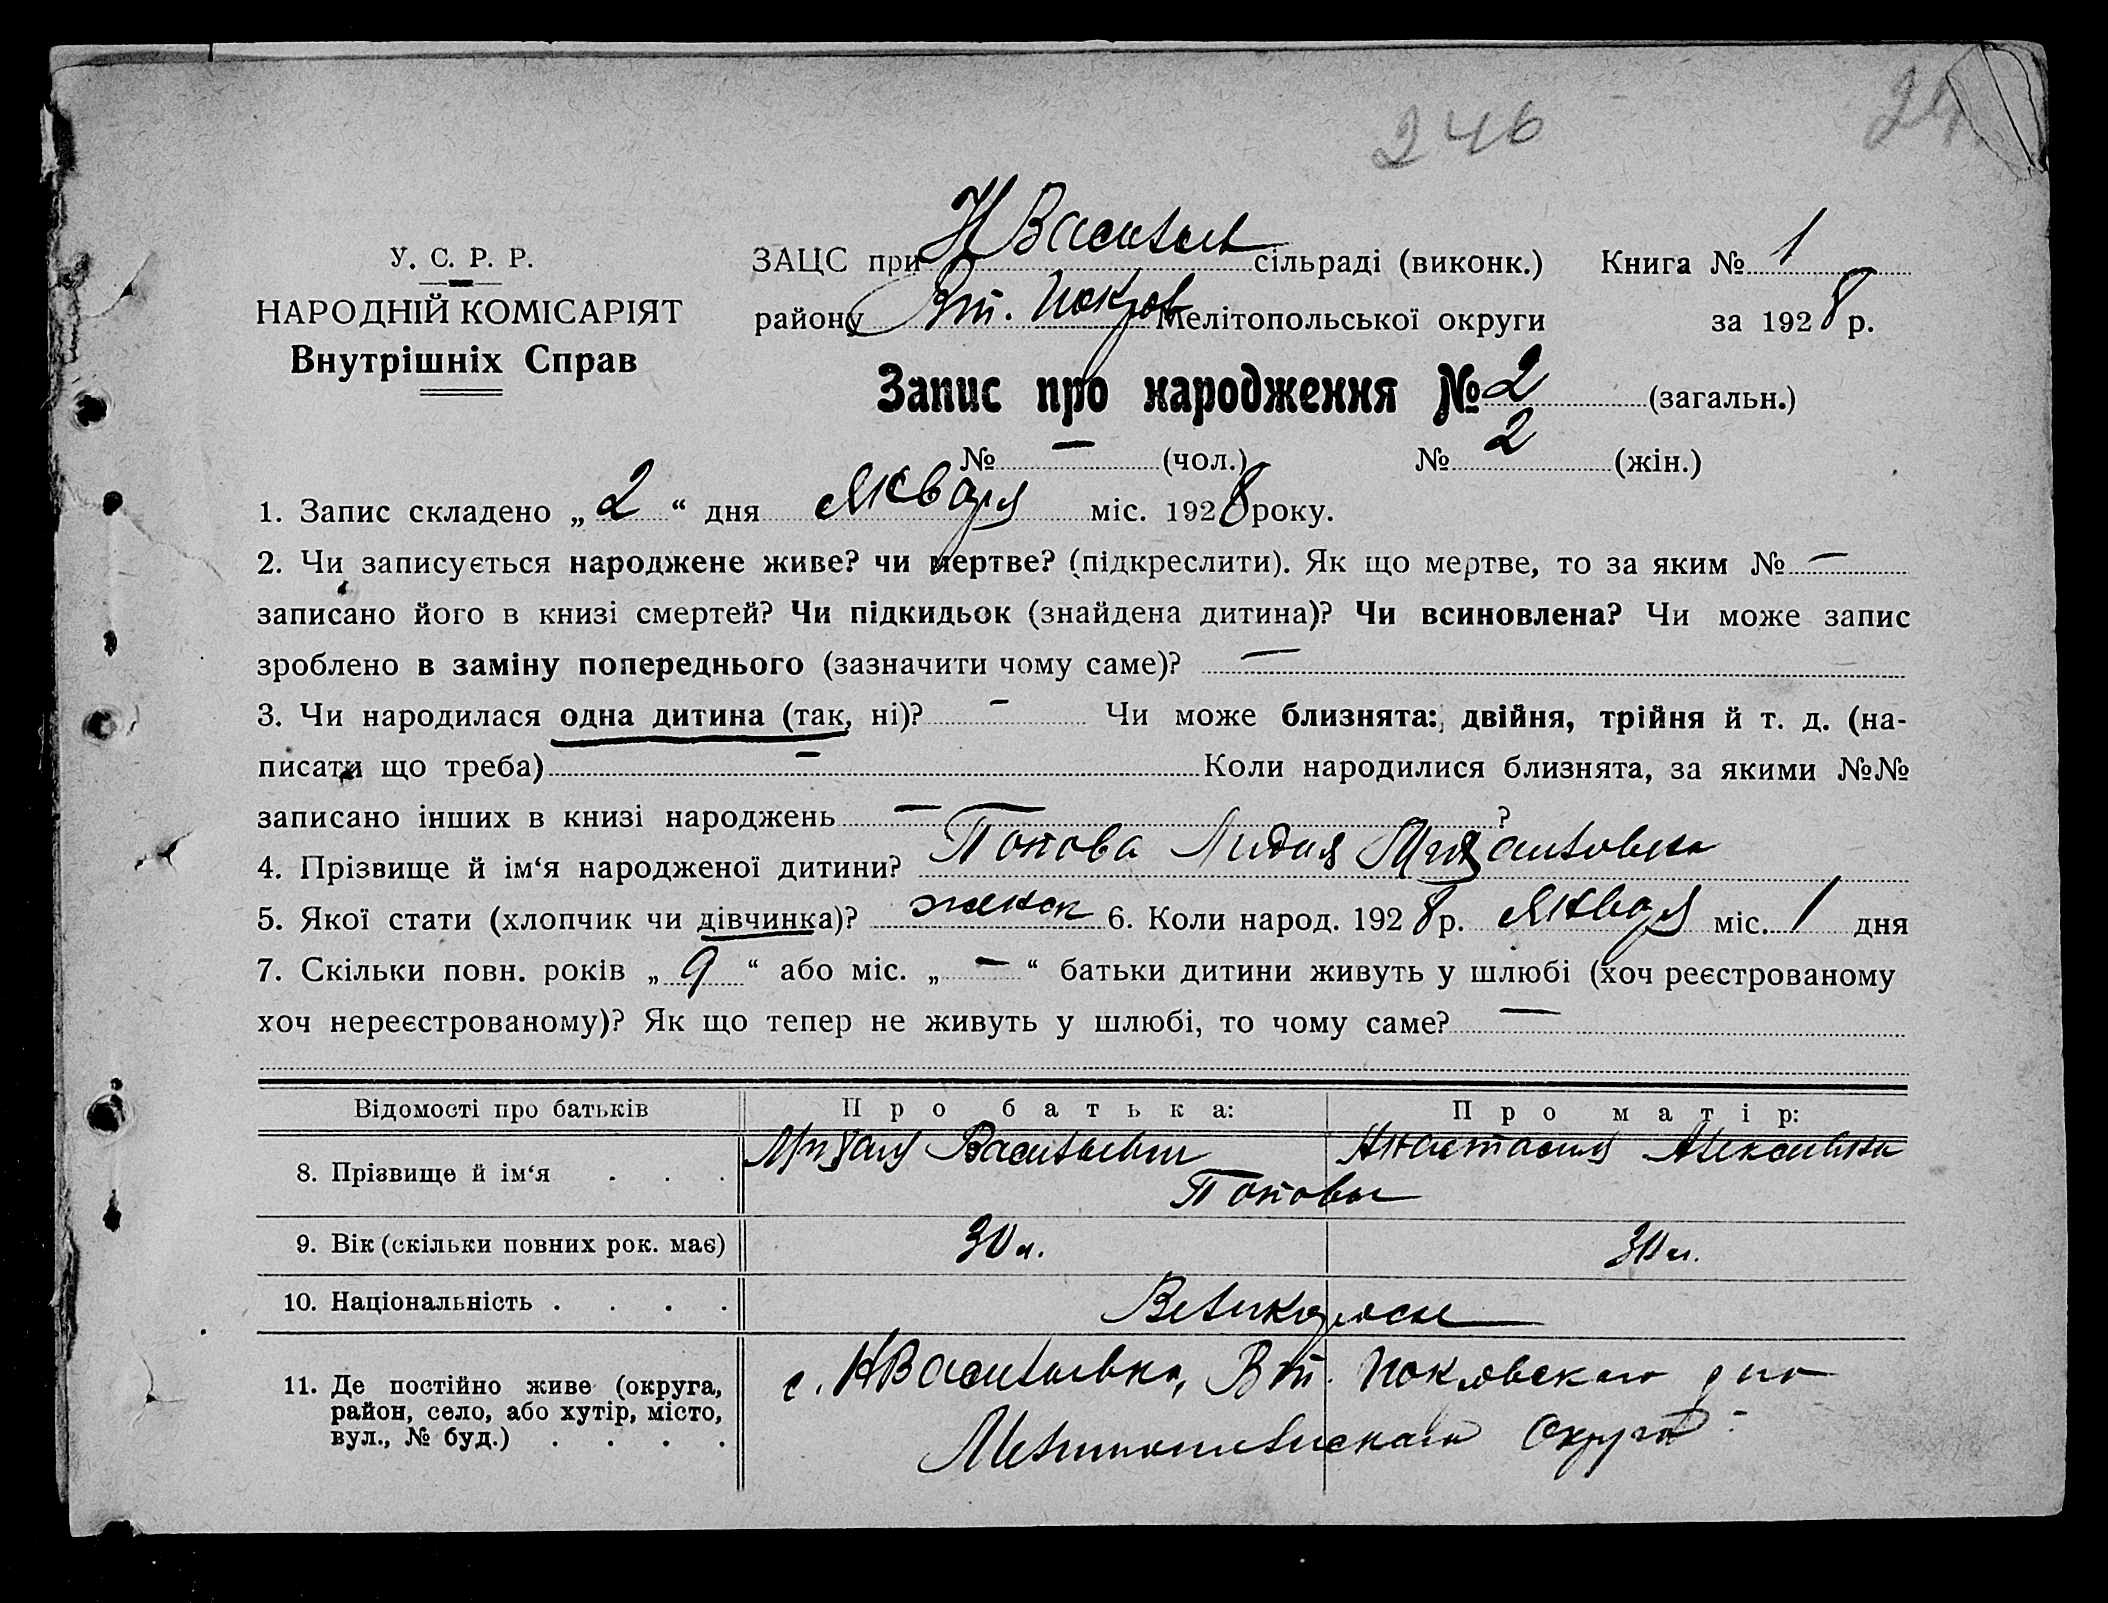 246
24
У. С. Р. Р.
НАРОДНІЙ КОМІСАРІЯТ
Внутрішніх Справ
ЗАЦС при Н Васильев сільраді (виконк.) Книга № 1
району Вт. Покров Мелітопольської округи за 1928 р.
Запис про народження № 2 (загальн.)
№ — (чол.) № 2 (жін.)
1. Запис складено „ 2 “ дня Января міс. 1928 року.
2. Чи записується народжене живе? чи мертве? (підкреслити). Як що мертве, то за яким № —
записано його в книзі смертей? Чи підкидьок (знайдена дитина)? Чи всиновлена? Чи може запис
зроблено в заміну попереднього (зазначити чому саме)? —
3. Чи народилася одна дитина (так, ні)? — Чи може близнята: двійня, трійня й т. д. (на-
писати що треба) — Коли народилися близнята, за якими №№
записано інших в книзі народжень — ?
4. Прізвище й ім‘я народженої дитини? Попова Лидия Михайловна
5. Якої стати (хлопчик чи дівчинка)? женск 6. Коли народ. 1928 р. Января міс. 1 дня
7. Скільки повн. років „ 9 “ або міс. „ — “ батьки дитини живуть у шлюбі (хоч реєстрованому
хоч нереєстрованому)? Як що тепер не живуть у шлюбі, то чому саме? —
Відомості про батьків Про батька: Про матір:
8. Прізвище й ім‘я . . . Михаил Васильевич Анастасия
Поповы
9. Вік (скільки повних рок. має) 30 л. 30 л.
10. Національність . . . . Великороссы
11. Де постійно живе (округа,
район, село, або хутір, місто,
вул., № буд.) . . . .
с. НВасильевка, Вт. Покровского р-на
Мелитопольскаго Округа